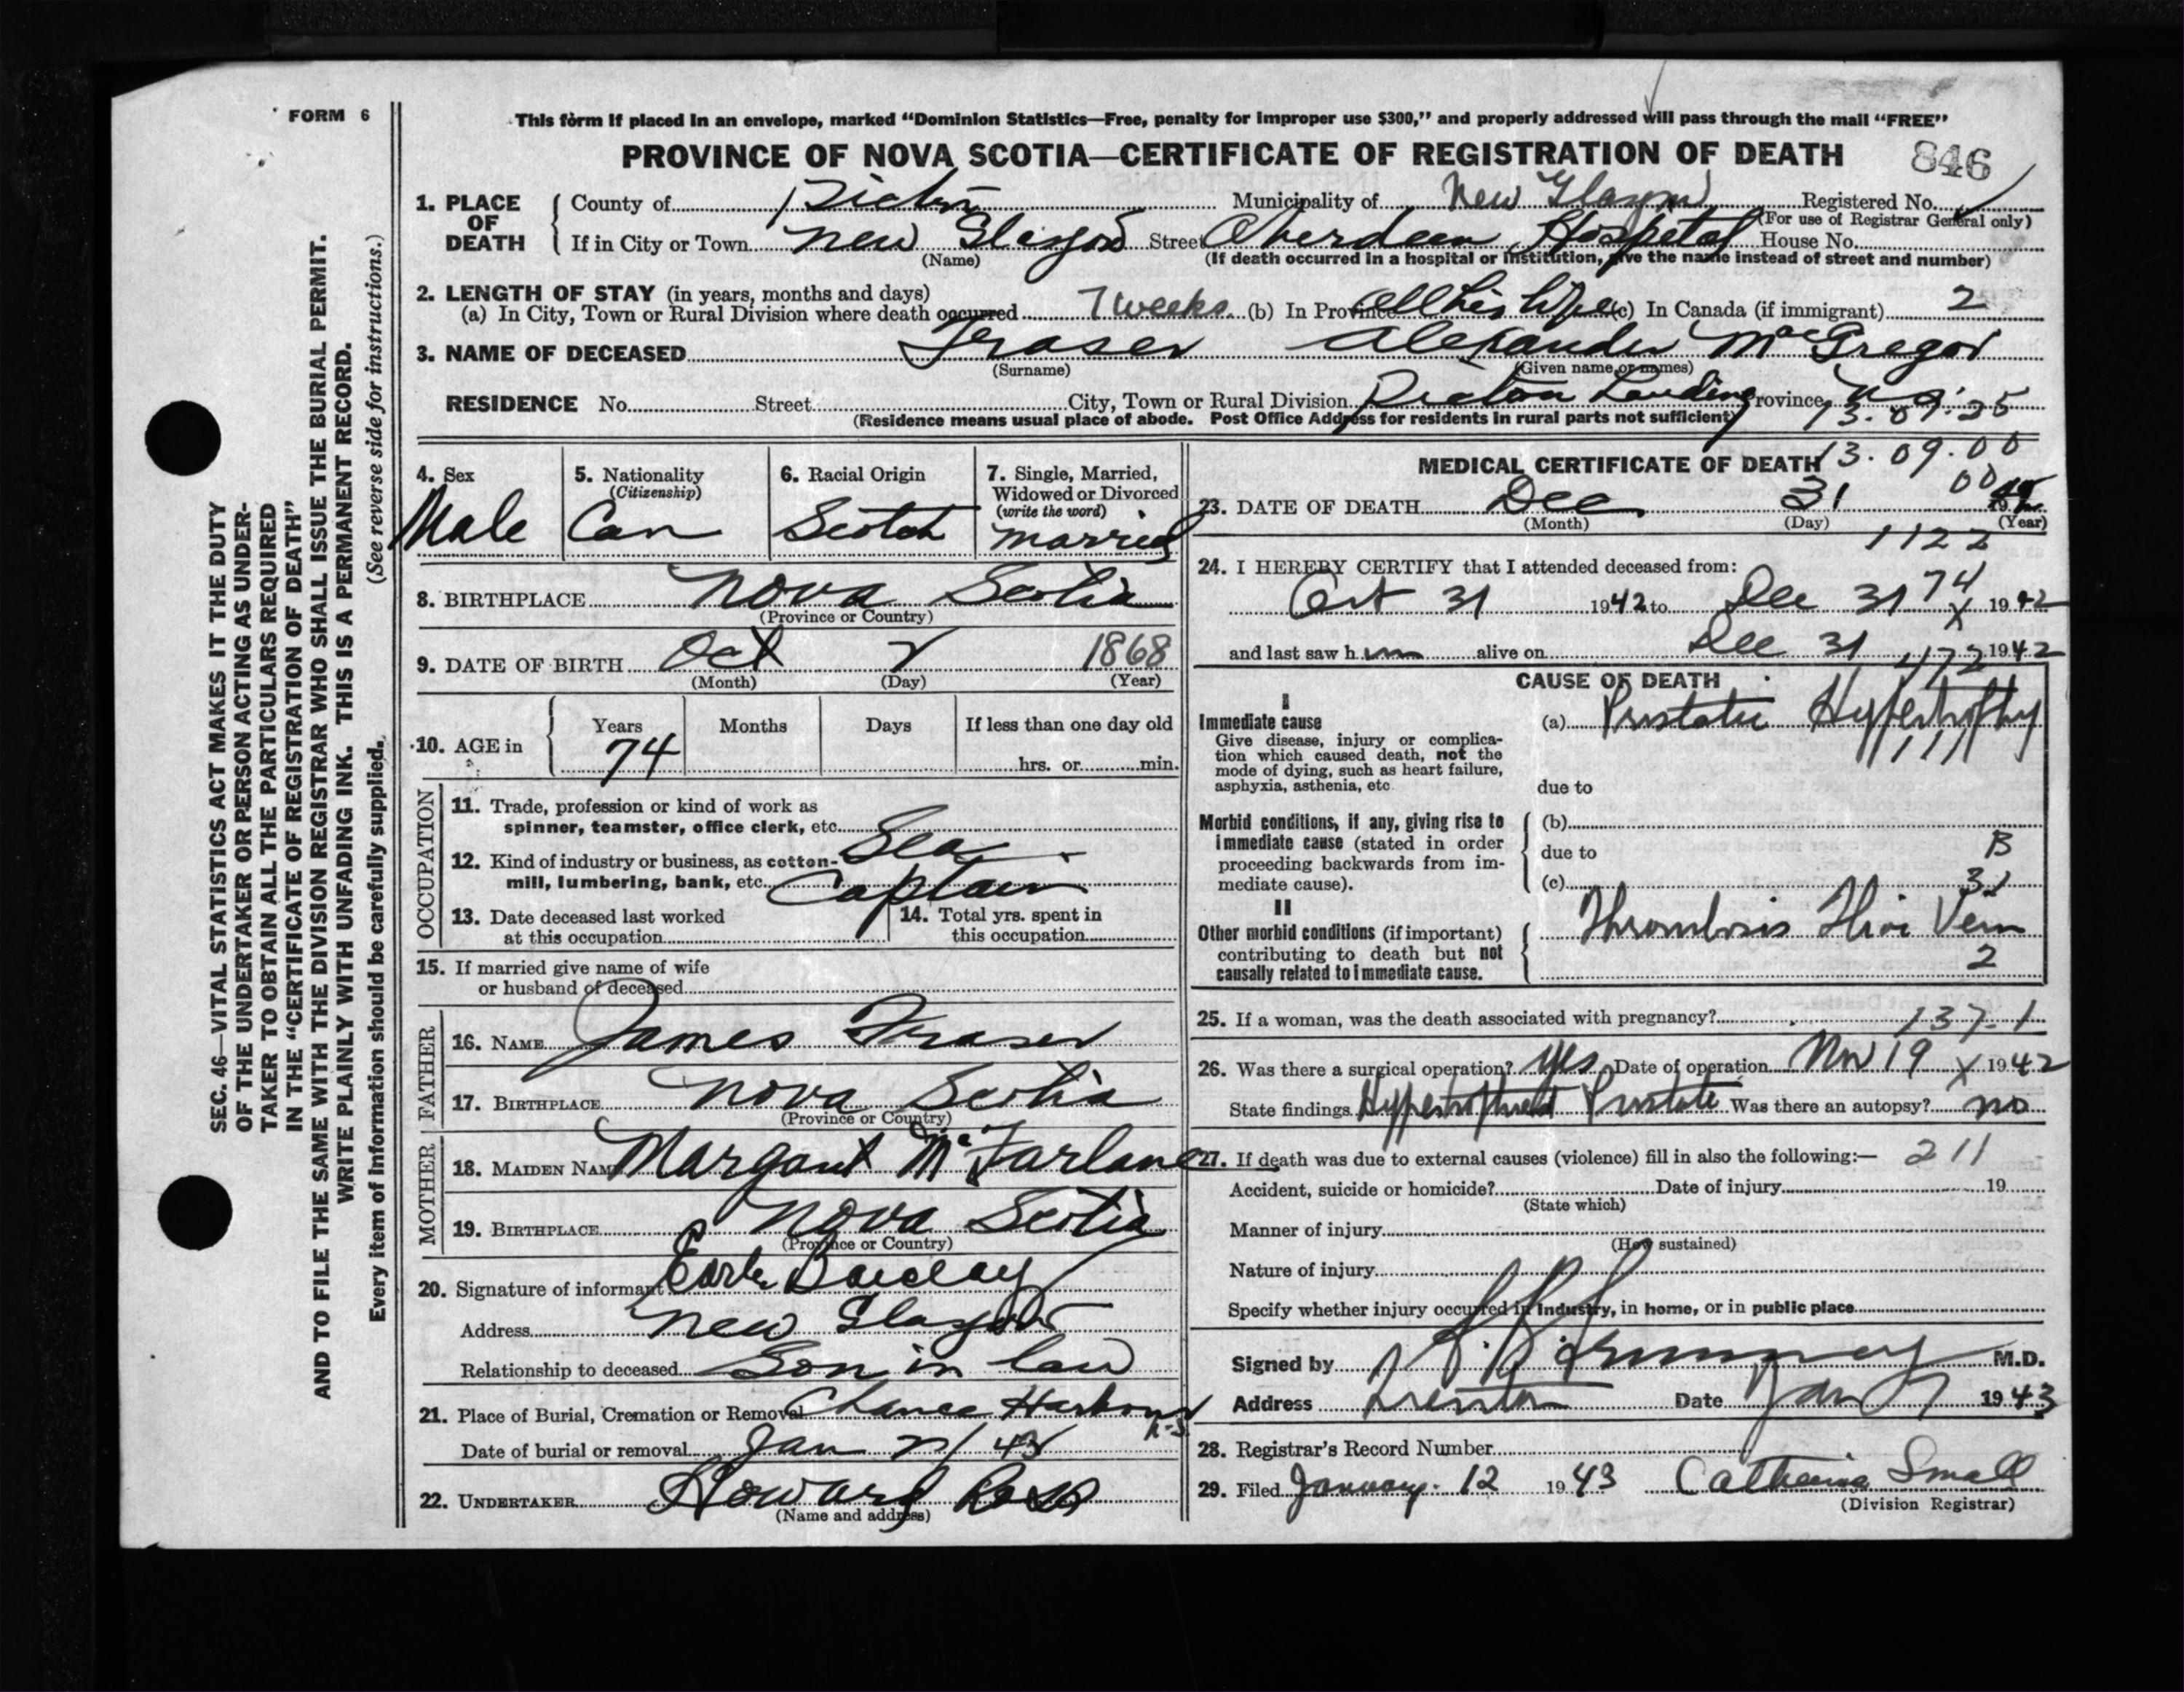 FORM 6
This form if placed in an envelope, marked “Dominion Statistics—Free, penalty for improper use $300,” and properly addressed will pass through the mail “FREE”
PROVINCE OF NOVA SCOTIA—CERTIFICATE OF REGISTRATION OF DEATH 846
1. PLACE OF DEATH
County of Pictou Municipality of New Glasgow Registered No.
(For use of Registrar General only)
If in City or Town New Glasgow Street Aberdeen Hospital House No.
(Name) (If death occurred in a hospital or institution, give the name instead of street and number)
2. LENGTH OF STAY (in years, months and days)
(a) In City, Town or Rural Division where death occurred 7 weeks (b) In Province all his life (c) In Canada (if immigrant) 2
3. NAME OF DECEASED Fraser Alexander MacGregor
(Surname) (Given name or names)
RESIDENCE No. Street City, Town or Rural Division Pictou Landing Province N.S.
13.09.25
(Residence means usual place of abode. Post Office Address for residents in rural parts not sufficient)
4. Sex 5. Nationality 6. Racial Origin 7. Single, Married,
(Citizenship) Widowed or Divorced
(write the word)
Male Can Scotch Married
8. BIRTHPLACE Nova Scotia
(Province or Country)
9. DATE OF BIRTH Oct 2 1868
(Month) (Day) (Year)
10. AGE in Years Months Days If less than one day old
74 hrs. or min.
OCCUPATION
11. Trade, profession or kind of work as
spinner, teamster, office clerk, etc. Sea
12. Kind of industry or business, as cotton-
mill, lumbering, bank, etc. Captain
13. Date deceased last worked 14. Total yrs. spent in
at this occupation this occupation
15. If married give name of wife
or husband of deceased
FATHER
16. NAME James Fraser
17. BIRTHPLACE Nova Scotia
(Province or Country)
MOTHER
18. MAIDEN NAME Margaret McFarlane
19. BIRTHPLACE Nova Scotia
(Province or Country)
20. Signature of informant Earle Barclay
Address New Glasgow
Relationship to deceased Son in law
21. Place of Burial, Cremation or Removal Chance Harbour
N.S.
Date of burial or removal Jan 2/43
22. UNDERTAKER Howard Ross
(Name and address)
MEDICAL CERTIFICATE OF DEATH 13.09.00
00
23. DATE OF DEATH Dec 31 1942
(Month) (Day) (Year)
1122
24. I HEREBY CERTIFY that I attended deceased from:
74
Oct 31 1942 to Dec 31 X 1942
and last saw him alive on Dec 31 1942
472
CAUSE OF DEATH
I
Immediate cause (a) Prostatic Hypertrophy
Give disease, injury or complica-
tion which caused death, not the
mode of dying, such as heart failure,
asphyxia, asthenia, etc. due to
Morbid conditions, if any, giving rise to (b)
immediate cause (stated in order due to B
proceeding backwards from im-
mediate cause). (c) 31
II
Other morbid conditions (if important) Thrombosis Vein
contributing to death but not
causally related to immediate cause. 2
25. If a woman, was the death associated with pregnancy? 137-1
26. Was there a surgical operation? Yes Date of operation Nov 19 X 1942
State findings Hypertrophied Prostate Was there an autopsy? no
27. If death was due to external causes (violence) fill in also the following:— 211
Accident, suicide or homicide? Date of injury 19
(State which)
Manner of injury
(How sustained)
Nature of injury
Specify whether injury occurred in industry, in home, or in public place
Signed by M.D.
Address Trenton Date Jan 7 1943
28. Registrar's Record Number
29. Filed January 12 1943 Catherine Small
(Division Registrar)
SEC. 46—VITAL STATISTICS ACT MAKES IT THE DUTY
OF THE UNDERTAKER OR PERSON ACTING AS UNDER-
TAKER TO OBTAIN ALL THE PARTICULARS REQUIRED
IN THE “CERTIFICATE OF REGISTRATION OF DEATH”
AND TO FILE THE SAME WITH THE DIVISION REGISTRAR WHO SHALL ISSUE THE BURIAL PERMIT.
WRITE PLAINLY WITH UNFADING INK. THIS IS A PERMANENT RECORD.
Every item of information should be carefully supplied. (See reverse side for instructions.)